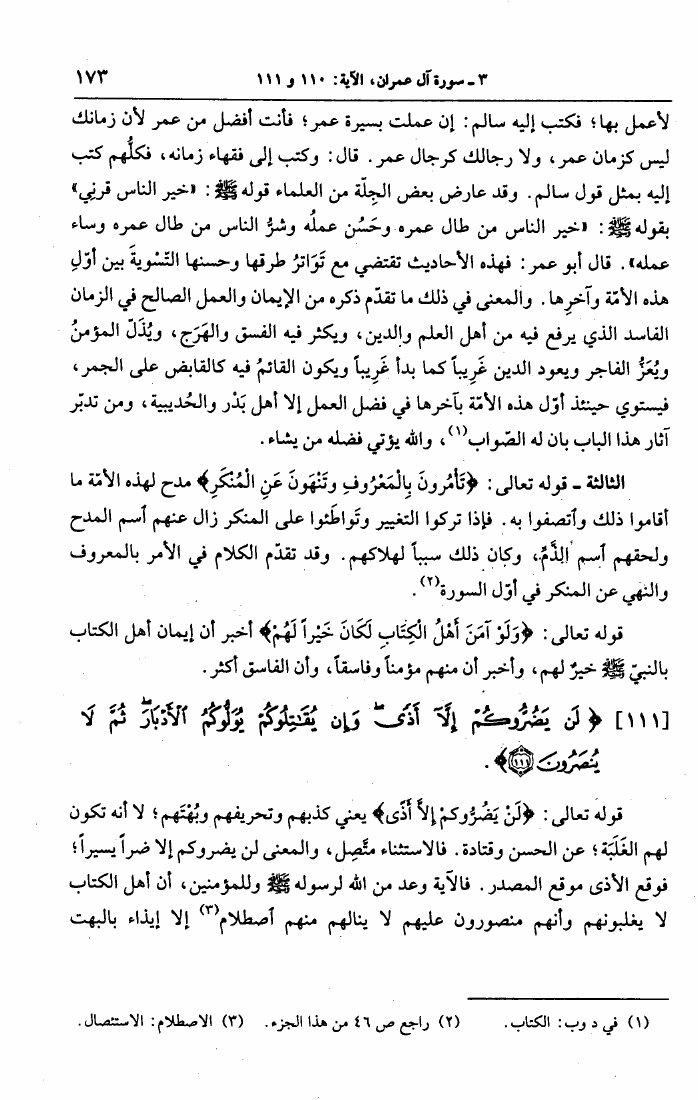 ٣ ـ سورة آل عمران، الآية: ١١٠ و ١١١ ١٧٣
لأعمل بها؛ فكتب إليه سالم: إن عملت بسيرة عمر؛ فأنت أفضل من عمر لأن زمانك
ليس كزمان عمر، ولا رجالك كرجال عمر. قال: وكتب إلى فقهاء زمانه، فكلُّهم كتب
إليه بمثل قول سالم. وقد عارض بعض الجِلّة من العلماء قوله ﷺ: «خير الناس قرني»
بقوله ﷺ: «خير الناس من طال عمره وحَسُن عملُه وشرُّ الناس من طال عمره وساء
عمله». قال أبو عمر: فهذه الأحاديث تقتضي مع تَوَاترُ طرقها وحسنها التّسْويةَ بين أوّلِ
هذه الأمّة وآخرِها. والمعنى في ذلك ما تقدّم ذكره من الإيمان والعمل الصالح في الزمان
الفاسد الذي يرفع فيه من أهل العلم والدين، ويكثر فيه الفسق والهَرَج، ويُذَلّ المؤمنُ
ويُعَزُّ الفاجر ويعود الدين غَرِيباً كما بدأ غَرِيباً ويكون القائمُ فيه كالقابض على الجمر،
فيستوي حينئذ أوّل هذه الأمّة بآخرها في فضل العمل إلا أهل بَدْر والحُديبية، ومن تدبّر
آثار هذا الباب بان له الصّواب(١)، والله يؤتي فضله من يشاء.
الثالثة ـ قوله تعالى: ﴿تَأْمُرونَ بِالْمَعْرُوفِ وتَنْهَونَ عَنِ الْمُنْكَرِ﴾ مدح لهذه الأمّة ما
أقاموا ذلك وٱتصفوا به. فإذا تركوا التغيير وتَواطَئوا على المنكر زال عنهم ٱسم المدح
ولحقهم ٱسم الذَّمِّ، وكان ذلك سبباً لهلاكهم. وقد تقدّم الكلام في الأمر بالمعروف
والنهي عن المنكر في أوّل السورة(٢).
قوله تعالى: ﴿وَلَوْ آمَنَ أَهْلُ الْكِتَابِ لَكَانَ خَيْراً لَهُمْ﴾ أخبر أن إيمان أهل الكتاب
بالنبيّ ﷺ خيرٌ لهم، وأخبر أن منهم مؤمناً وفاسقاً، وأن الفاسق أكثر.
[١١١] ﴿لَن يَضُرُّوكُمْ إِلَّآ أَذًىۖ وَإِن يُقَٰتِلُوكُمْ يُوَلُّوكُمُ ٱلْأَدْبَارَۖ ثُمَّ لَا
يُنصَرُونَ ١١١﴾.
قوله تعالى: ﴿لَنْ يَضُرُّوكمْ إلاَّ أَذًى﴾ يعني كذبهم وتحريفهم وبُهْتَهم؛ لا أنه تكون
لهم الغَلَبَة؛ عن الحسن وقتادة. فالاستثناء متَّصِل، والمعنى لن يضروكم إلا ضراً يسيراً؛
فوقع الأذى موقع المصدر. فالآية وعد من الله لرسوله ﷺ وللمؤمنين، أن أهل الكتاب
لا يغلبونهم وأنهم منصورون عليهم لا ينالهم منهم ٱصطلام(٣) إلا إيذاء بالبهت
(١) في د وب: الكتاب. (٢) راجع ص ٤٦ من هذا الجزء. (٣) الاصطلام: الاستئصال.